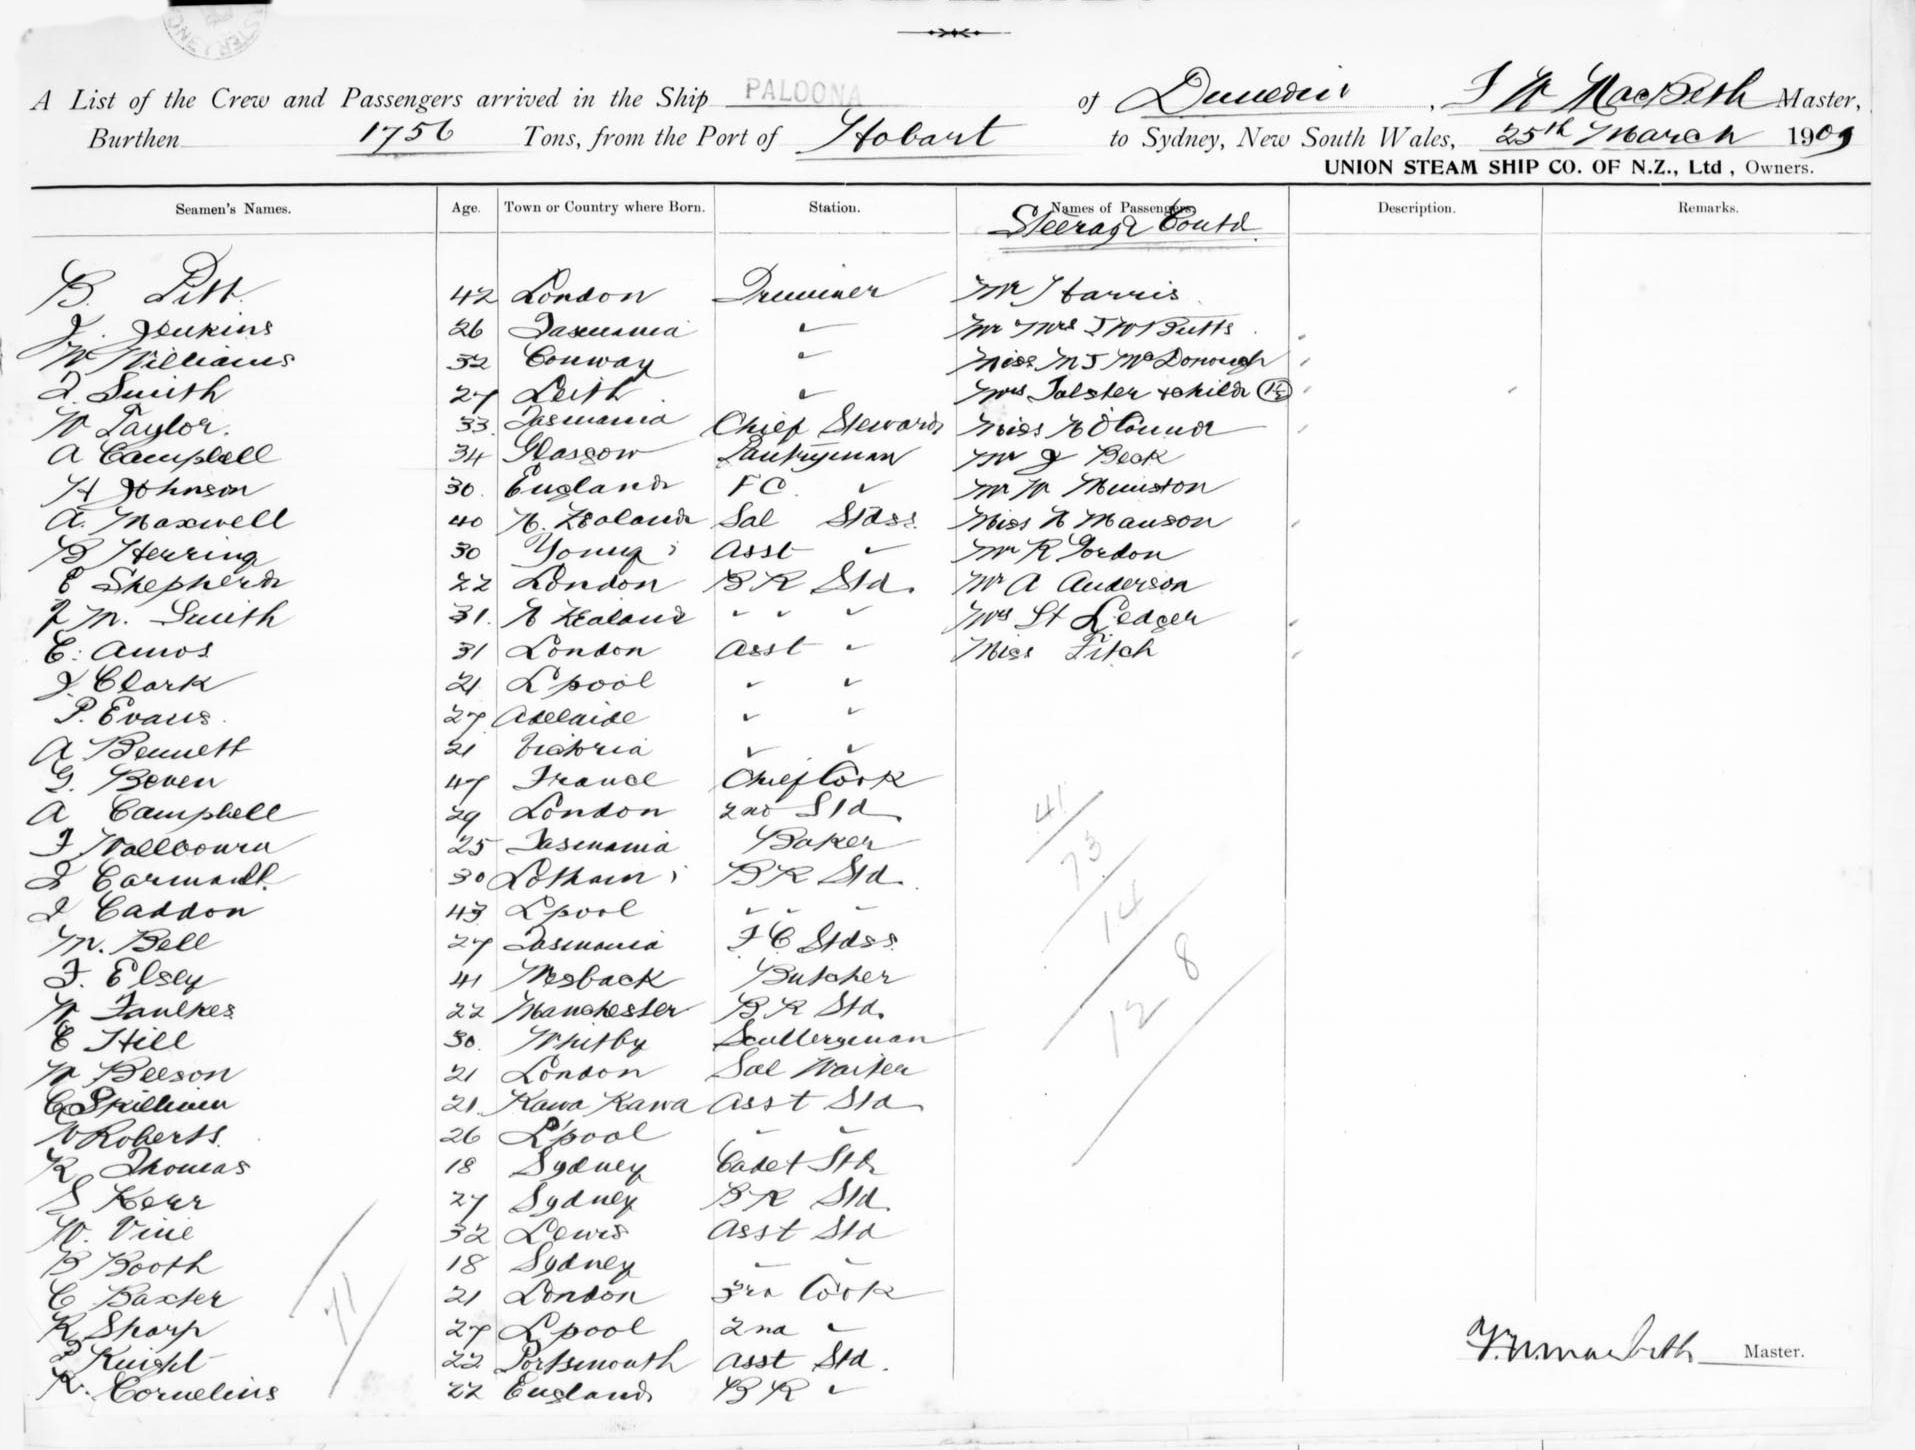 A List of the Crew and Passengers arrived in the Ship PALOONA of Dunedin, J W MacBeth Master,
Burthen 1756 Tons, from the Port of Hobart to Sydney, New South Wales, 25th March 1909
UNION STEAM SHIP CO. OF N.Z., Ltd, Owners.
Seamen's Names. Age. Town or Country where Born. Station. Names of Passengers. Description. Remarks.
Steerage Contd
B. Pitt 42 London Trimmer Mr Harris
J. Jenkins 26 Tasmania " Mr Mrs J W Butts
W Williams 32 Conway " Miss M J McDonough
J. Smith 27 Leith " Mrs Tolster & child
W Taylor. 33 Tasmania Chief Steward Miss
A Campbell 34 Glasgow Pantryman Mr J Beck
H Johnson 30. England F C. " Mr W Munston
A. Maxwell 40 N. Zealand Sal Stdss. Miss N Manson
B Herring 30 Young Asst " Mr R Gordon
E Shepherd 22 London B R Std. Mr A Anderson
J M. Smith 31. N Zealand " " " Mrs St Ledger
E. Amos 31 London Asst " Miss Fitch
J. Clark 21 L'pool " "
P. Evans. 27 Adelaide " "
A Bennett 21 Victoria " "
G. Beven 47 France Chief Cook
A Campbell 29 London 2nd Std
F Wallbourn 25 Tasmania Baker
J 30 B R Std.
J Caddon 43 L'pool " " "
M. Bell 27 Tasmania F. C Stdss
F. Elsey 41 Wesback Butcher
W Faulkes 22 Manchester B R Std.
E Hill 30. Whitby Sculleryman
W Beeson 21 London Sal Waiter
C Skillium 21. Kawa Kawa Asst Std
W Roberts. 26 L'pool " "
R Thomas 18 Sydney Cadet Std
S Kerr 27 Sydney B R Std.
W. Vine 32 Lewis Asst Std
B Booth 18 Sydney " "
C Baxter 21 London 3rd Cook
R Sharp 27 L'pool 2nd "
P Knight 22 Portsmouth Asst Std.
R. Cornelius 22 England B R "
41
73
14
8
12
71
J.W. MacBeth Master.